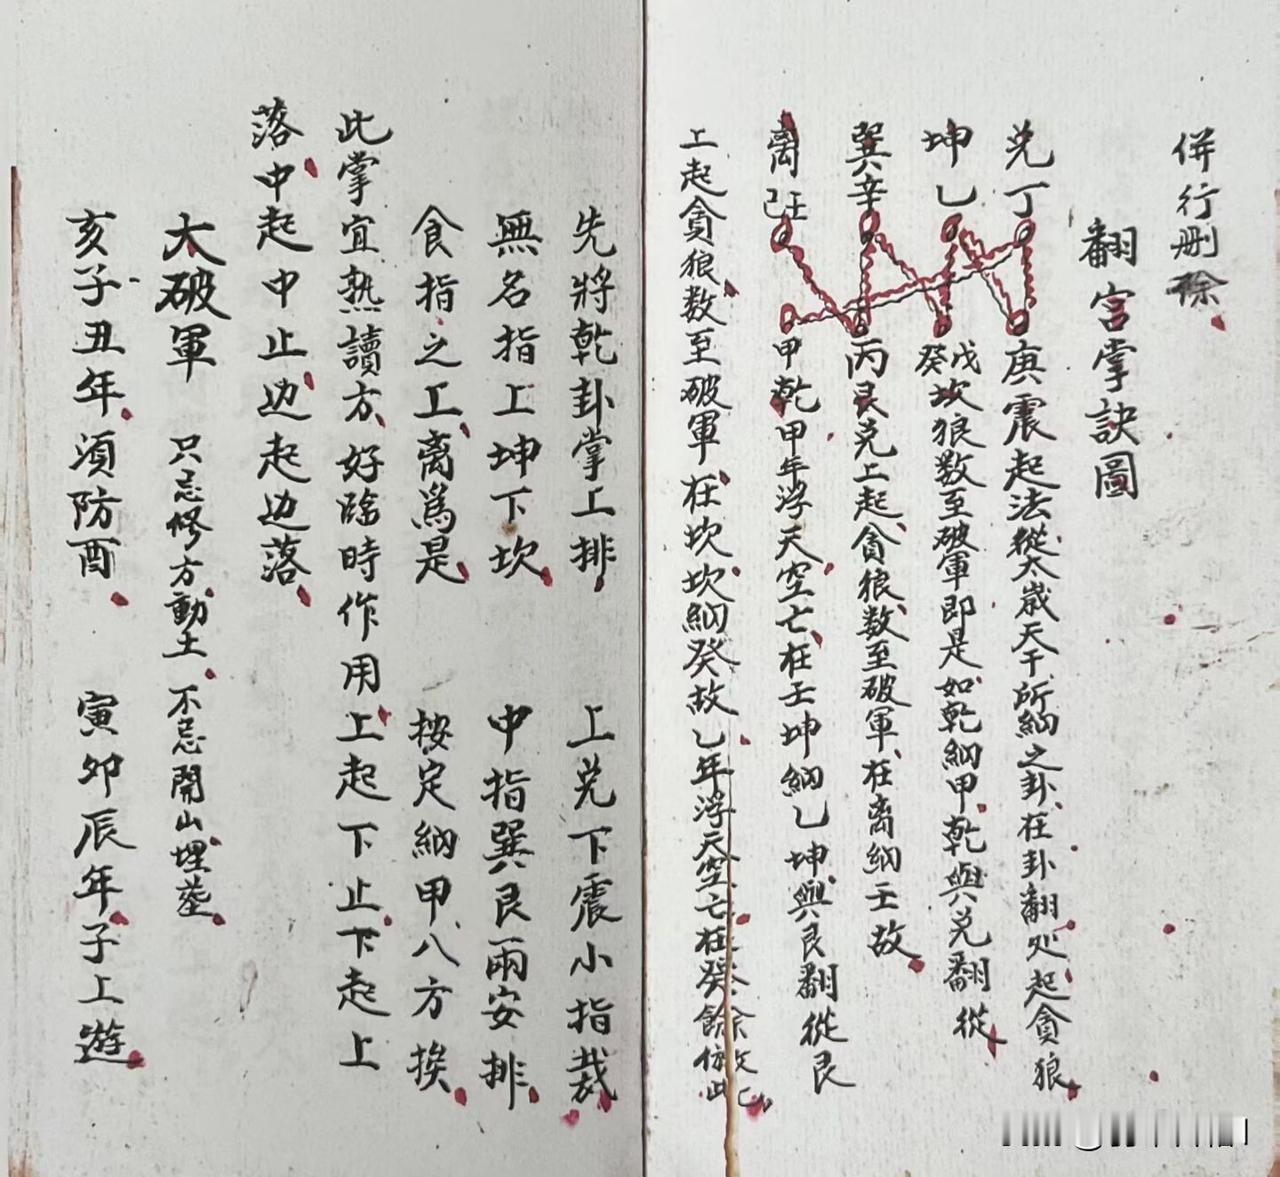 併行删除
翻宮掌訣圖
兌丁 庚震起法從太歲天干所納之卦在卦翻处起貪狼
坤乙 戊癸坎狼数至破軍即是如乾納甲乾與兌翻從
巽辛 丙艮兌上起貪狼数至破軍在离納壬故
离壬己 甲乾甲年浮天空亡在壬坤納乙坤與艮翻從艮
上起貪狼数至破軍在坎坎納癸故乙年浮天空亡在癸餘倣此
先將乾卦掌上排 上兌下震小指裁
無名指上坤下坎 中指巽艮兩安排
食指之工离爲是 按定納甲八方挨
此掌宜熟讀方好臨時作用上起下止下起上
落中起中止边起边落
大破軍 只忌修方動土不忌開山埋塟
亥子丑年須防酉 寅卯辰年子上遊